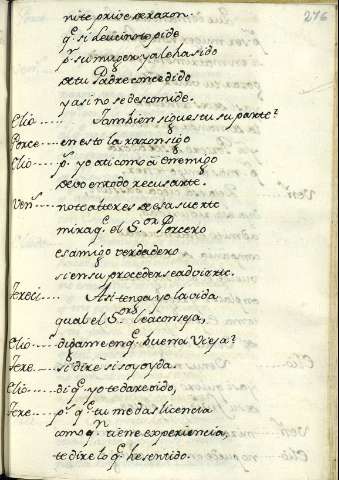 276
no te prive de razon.
q.e si Leucino te pide
p.r su muger ya le ha sido
de tu Padre concedido
y asi no se descomide.
Clio...... Tambien sigues tu su parte?
Porce..... en esto la razon sigo
Clio...... p.s yo a ti como a enemigo
devo en todo recusarte.
Ven.s..... no te alteres de esa suerte
mira q.e el S.or Porcero
es amigo verdadero
si en su proceder se advierte.
Tereci.... Asi tenga yo la vida
qual el S.or le aconseja,
Clio...... digame en q.e buena Vieja?
Tere...... si diré si soy oyda.
Clio...... di q.e yo te dare oido,
Tere...... p.s q.e tu me das licencia
como q.n tiene experiencia,
te dire lo q.e he sentido.